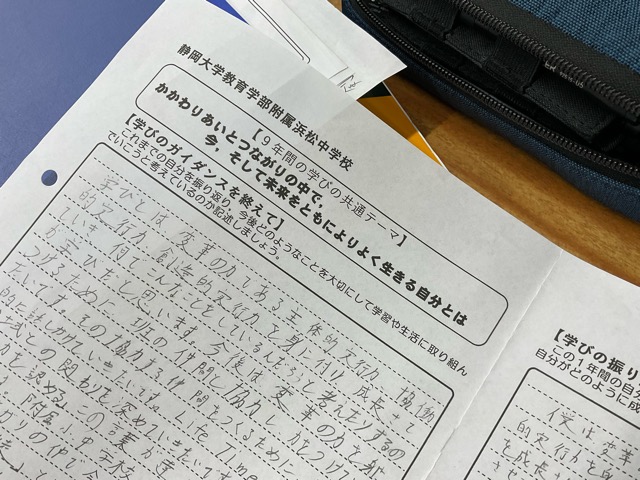 静岡大学教育学部附属浜松中学校
【９年間の学びの共通テーマ】
かかわりあいとつながりの中で、
今、そして未来をともによりよく生きる自分とは
【学びのガイダンスを終えて】
これまでの自分を振り返り、今後どのようなことを大切にして学習や生活に取り組ん
でいこうと考えているのか記述しましょう。
学びとは、変革の力である主体的実行力、協働
的実行力、創造的実行力を身に付け、成長させて
いき、何でこんなことをしているんだろうと考えたりするの
が学びだと思います。今後は、変革の力を身に
つけるために、班の仲間と協力し力をつけていき
たいです。その協力する仲間をつくるために
的に話しかけていき
との関わりを深めていきたいです
力を認める」この言葉が
附属小中学校
かりの中で今
【学びの振り
この１年間の自分
自分がどのように成
僕は変革
的実行力を身
を成長さ
させ